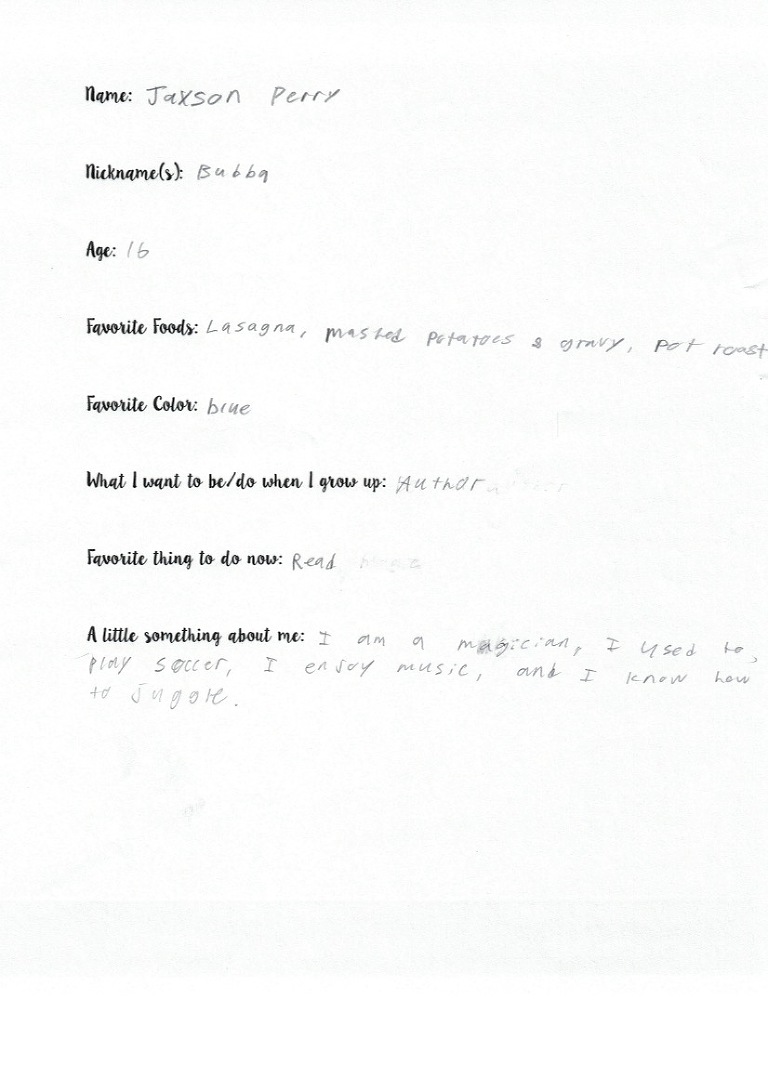 Name: Jaxson Perry
Nickname(s): Bubba
Age: 16
Favorite Foods: Lasagna, mashed potatoes & gravy, pot roast
Favorite Color: blue
What I want to be/do when I grow up: Author
Favorite thing to do now: Read
A little something about me: I am a magician, I used to
play soccer, I enjoy music, and I know how
to juggle.